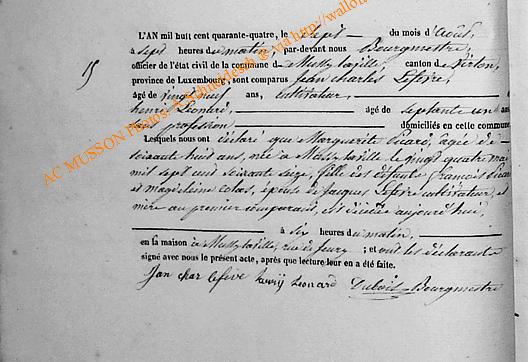 L'AN mil huit cent quarante-quatre, le Sept du mois d'Août,
à sept heures du matin, par-devant nous Bourgmestre,
15
officier de l'état civil de la commune de Mussy la ville canton de Virton,
province de Luxembourg, sont comparus Jean Charles Lefèvre,
âgé de vingt neuf ans, cultivateur,
henri Leonard, âgé de septante un ans
sans profession domiciliés en cette commune
Lesquels nous ont déclaré que Marguerite agée de
soixante huit ans, née à Mussy la ville le vingt quatre mai
mil sept cent soixante seize, fille des défunts françois
et magdelaine épouse de Jacques Lefèvre cultivateur, et
mère au premier comparant, est décédée aujourd'hui,
à six heures du matin,
en sa maison à Mussy la ville, rue de ; et ont les déclarants
signé avec nous le présent acte, après que lecture leur en a été faite.
Jan Char Lefevre henrÿ Leonard Dubois Bourgmestre
AC MUSSON Photos: A. Schneidesch @ via http://wallo